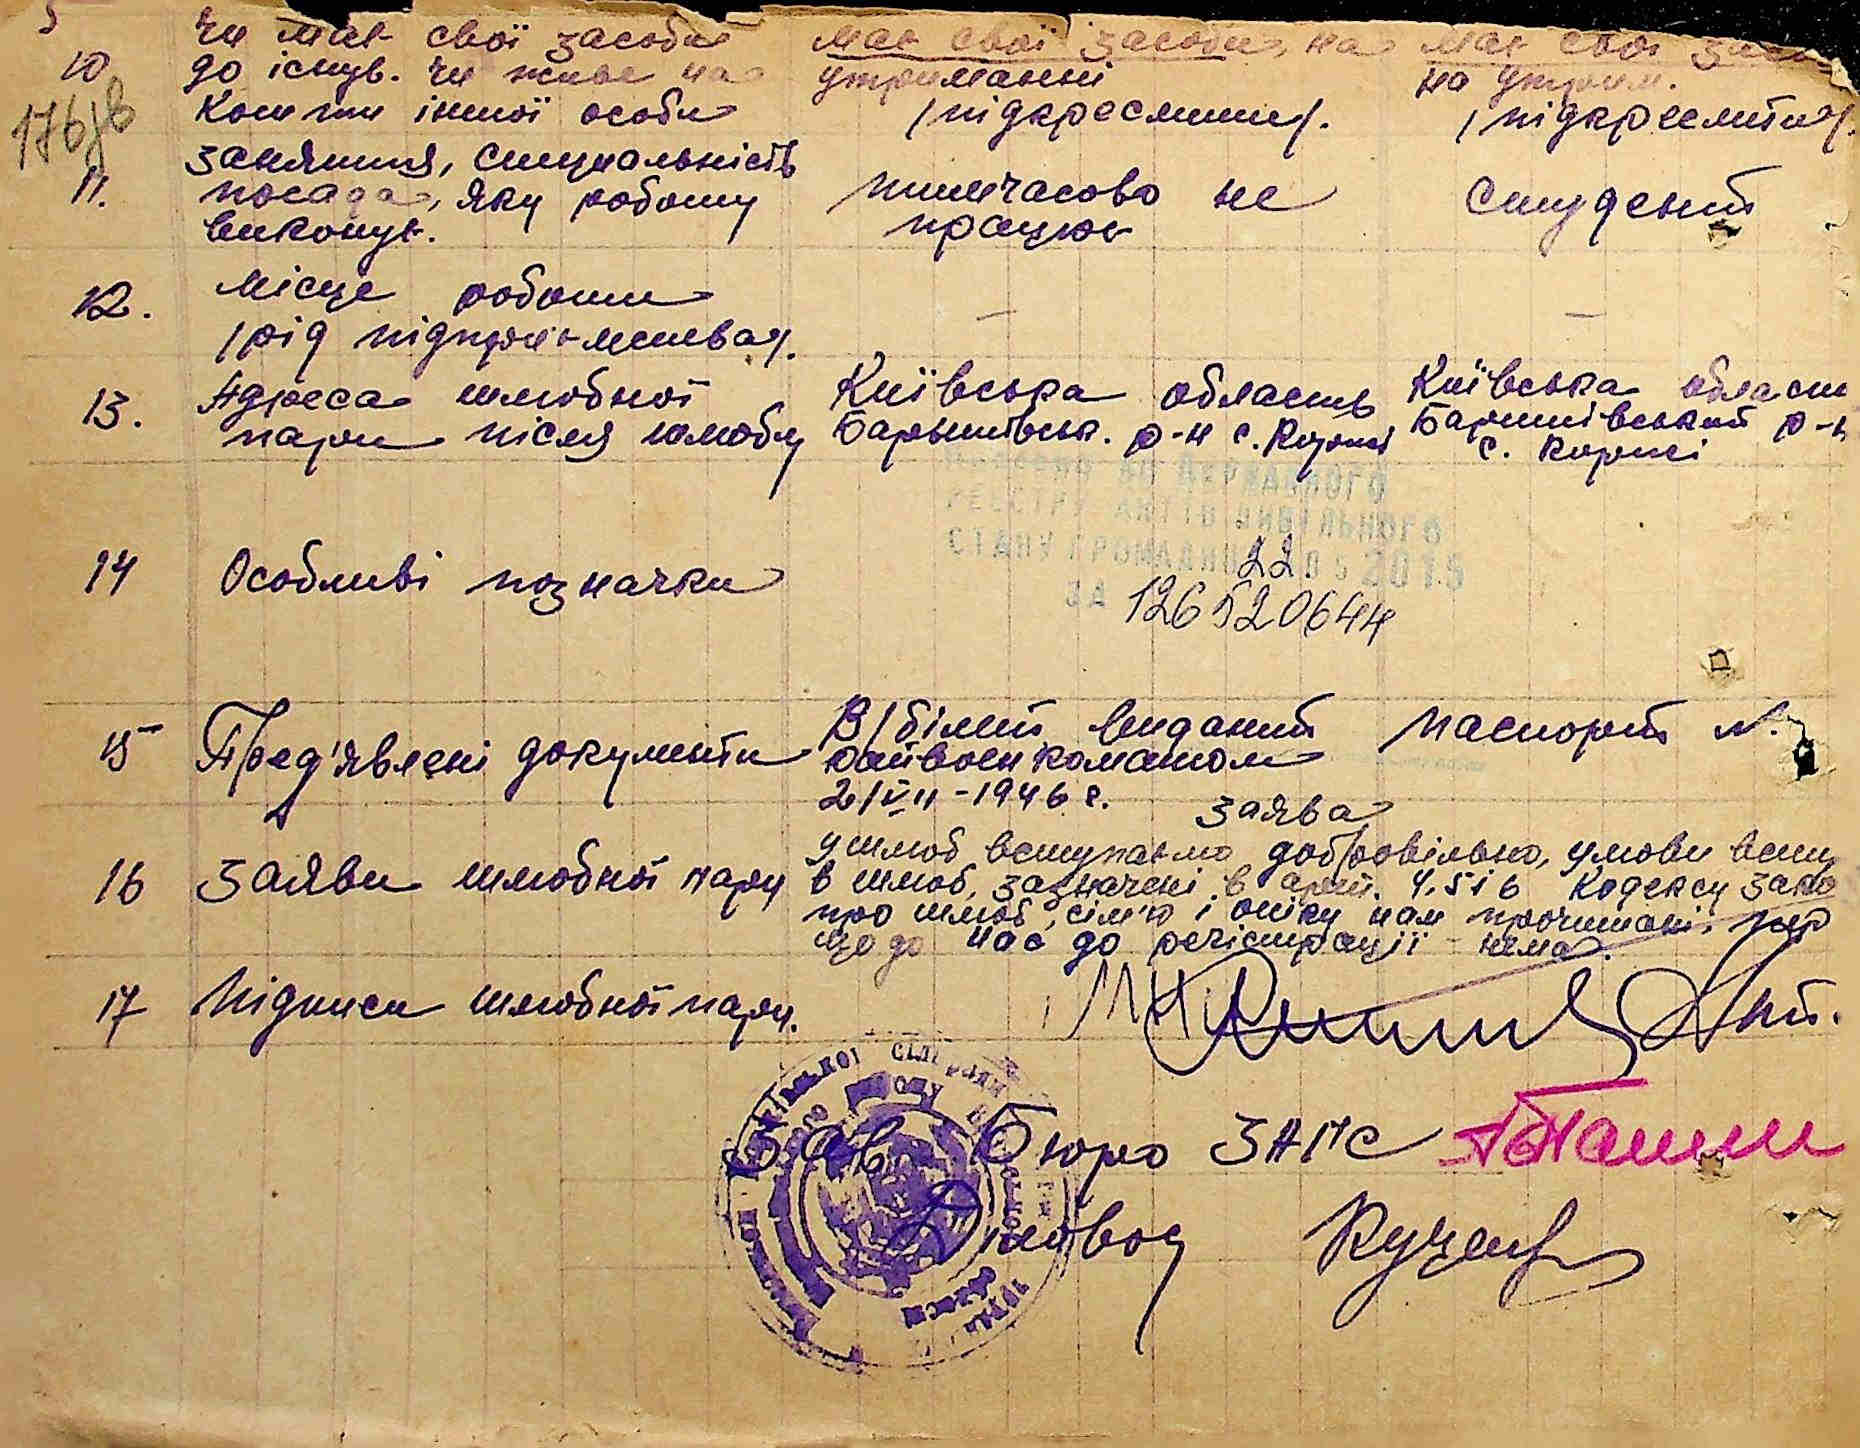 10 Чи має свої засоби має свої засоби, на має свої
до існув. чи живе на утриманні на утрим.
176/в кошти іншої особи /підкреслити/. /підкреслити/.
11. заняття, спеціальність
посада, яку роботу тимчасово не Студент
виконує. працює
12. Місце роботи — —
/рід підприємства/.
13. Адреса шлюбної Київська область Київська област
пари після шлюбу Баришівськ. р-н с. Коржі Баришівський р-н
с. Коржі
ДО ДЕРЖАВНОГО
РЕЄСТРУ АКТІВ ЦИВІЛЬНОГО
СТАНУ ГРОМАДЯН 22. 05 2015
14 Особливі позначки ЗА 126520644
15 Пред'явлені документи В/білет виданий паспорт №.
райвоенкоматом
2/VII-1946 г.
Заява
У шлюб вступаємо добровільно, умови всту
16 Заяви шлюбної пари в шлюб, зазначені в арт. 4, 5 і 6 Кодексу зако
про шлюб, сім'ю і опіку нам прочитані, пер
що до нас до регістрації нема.
17 Підписи шлюбної пари.
Зав Бюро ЗАГС
Діловод